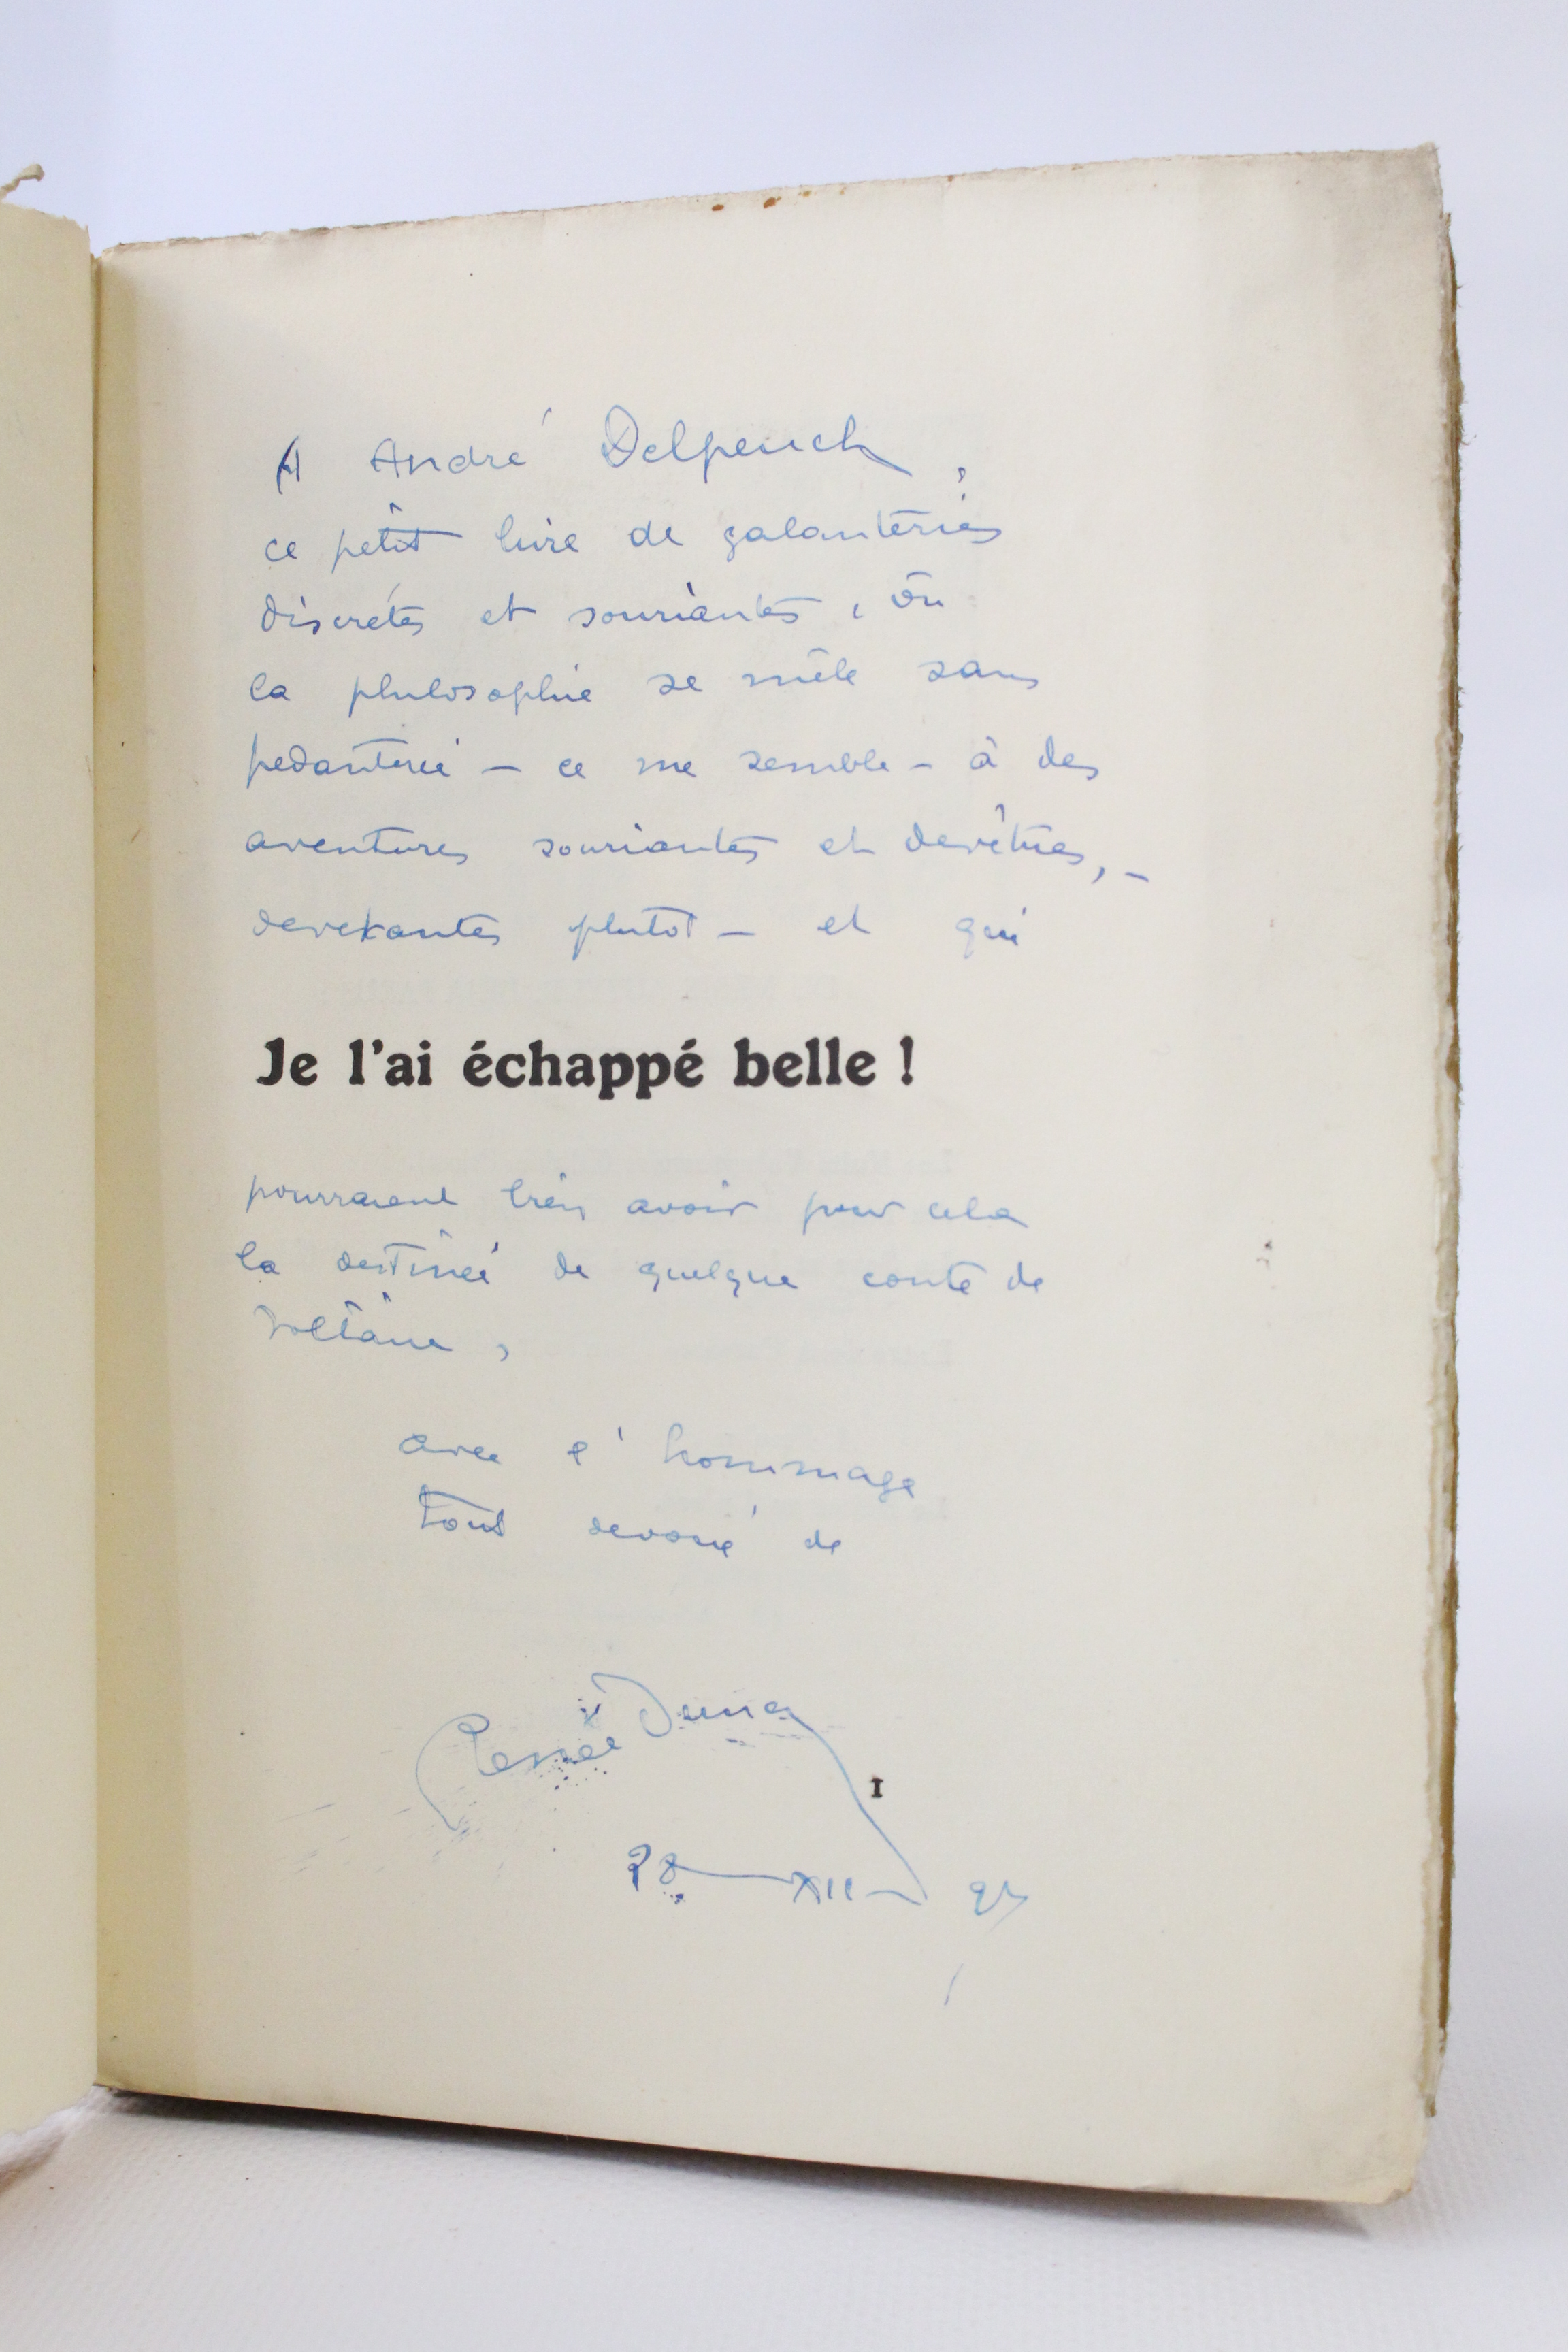 A André Delpeuch,
ce petit livre de galanteries
discrètes et souriantes, où
la philosophie se mêle sans
pedanterie — ce me semble — à des
aventures souriantes et devêtues, —
devetantes plutôt — et qui
Je l'ai échappé belle !
pourraient bien avoir pour cela
la destinée de quelque conte de
Voltaire,
avec l'hommage
tout devoué de
Renée Dunan
I
28 — XII — 27